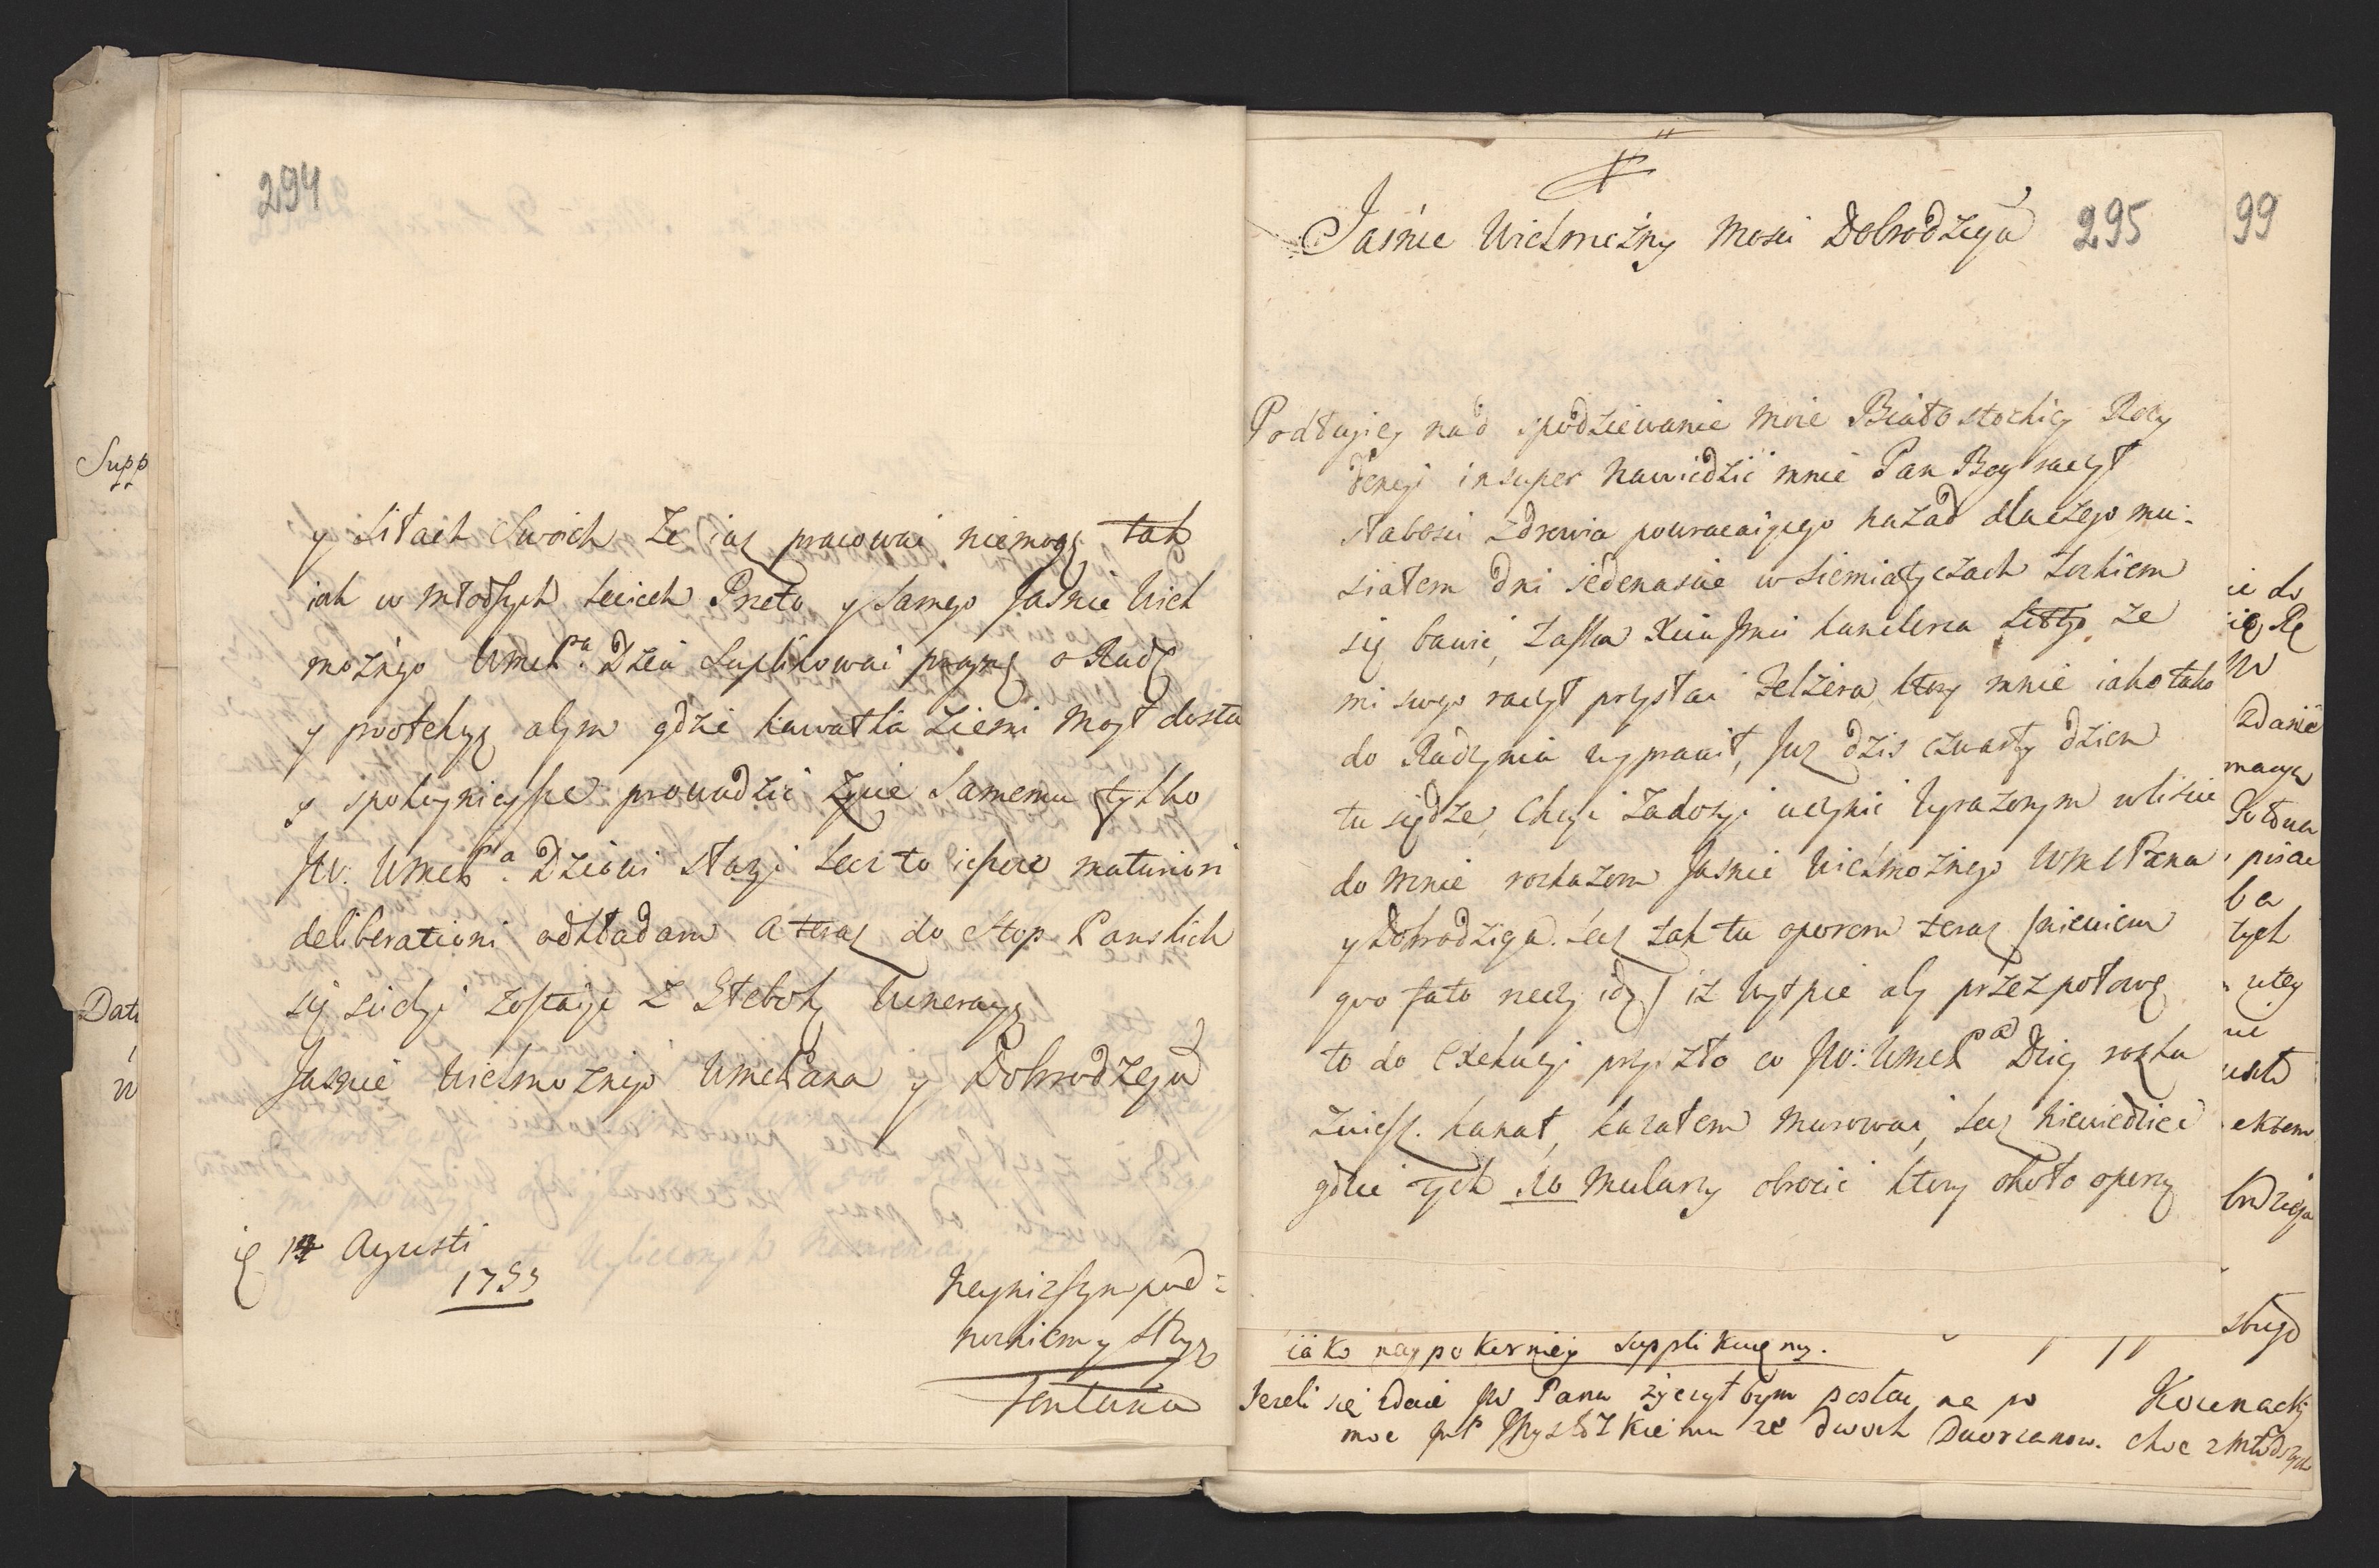 294
y siłach swoich że iuz pracować niemogę tak
iak w młodszych leciech Przeto y samego Jaśnie Wiel
możnego WMch Pa Dzia suplikować pragnę o Radę
y protekcyę abym gdzie kawałka ziemi mogł dosta
y spokoynieysze prowadzić życie samemu tylko
JW: WMch Pa Dziowi służy lecz to ieszcze maturiori
deliberationi odkładam a teraz do stop Pańskich
się ścielę zostaię z Głeboką Weneracyą
Jaśnie Wielmożnego WMchPana y Dobrodzieja
14 Agusti
1753
Nayniższym pod=
nożkiem y sługą
295
Jaśnie Wielmożny Mości Dobrodzieju
99
Podłużey nad spodziewanie moie Białostockiey Rezy
dencyi insuper nawiedzić mnie Pan Bog raczył
słabości zdrowia powracaiącego nazad dla czego mu=
siałem dni iedenascie w Siemiatyczach
się bawić, łaska Xcia Jmci kanclerza że
mi swego raczył przysłać Felzera, ktory mnie iako tako
do Radzynia wyprawił, Juz dzis czwarty dzien
tu siędze, Chcąc zadosyc uczynić wyrazonym w liście
do mnie rozkazom Jaśnie Wielmożnego WMchPana
y Dobrodzieja. lecz tak tu oporem teraz (niewiem
quo fato rzeczy idą) iż wątpię aby przez połowę
to do Exekucyi przyszło co JW: WMch Pa Dziey rozka
zuiesz. kanał, kazałem murować, lecz niewiedziec
gdzie tych mularzy obrocić ktory około opery
iäko naypokorniey supplikuięmy.
Jezeli się zdaie JW Panu życzył bym posłac na po
moc ze dwoch Dworzanow. choc z młodszych
Kounacki
Supp
Datt
zdanie
pisac
tych
sługo